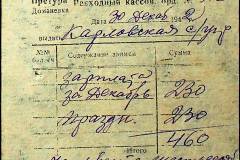 Претура Расходный кассов. орд. №
Доманевка
Дата 30 Декаб. 1942
выдать Карловская с/упр
№№ Содержание записи Сумма
зарплата
за Декабрь 230
Праздн. 230
Итого 460